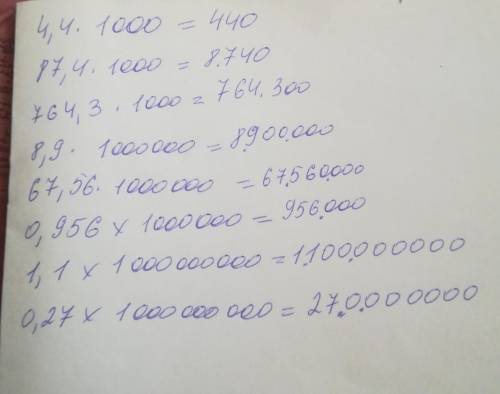 4,4 · 1000 = 440
87,4 · 1000 = 8.740
764,3 · 1000 = 764.300
8,9 · 1000000 = 8.900.000
67,56 · 1000000 = 67.560.000
0,956 x 1000000 = 956.000
1,1 x 1000000000 = 1.100.000000
0,27 x 1000000000 = 27.0.000000